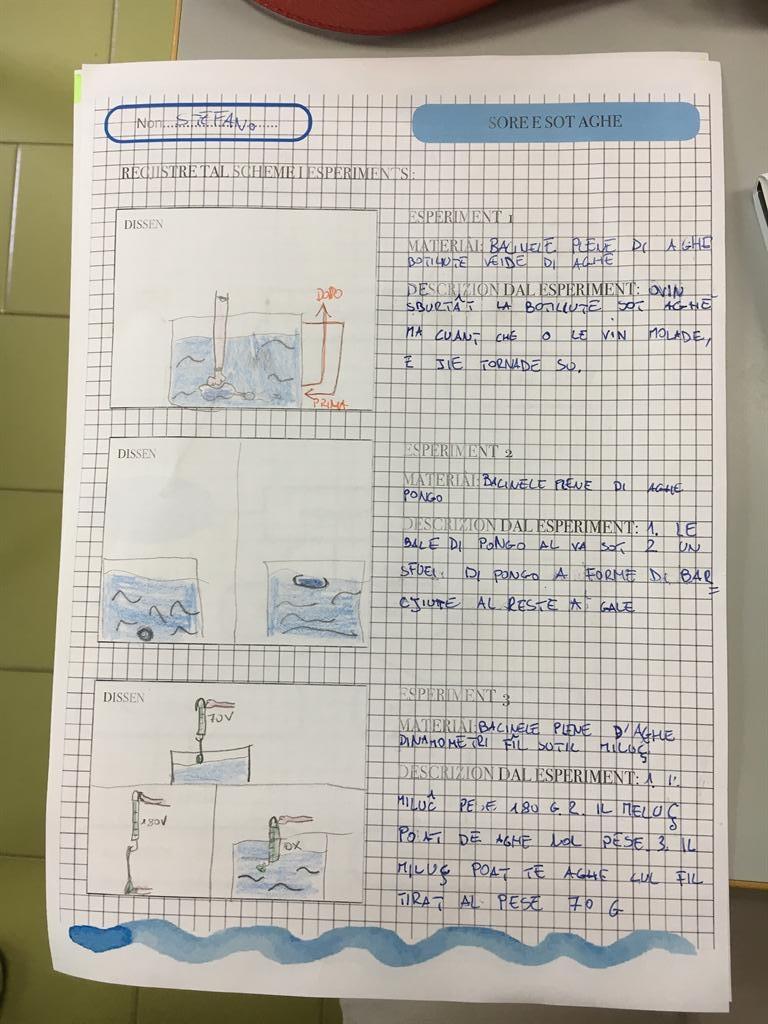 Non....STEFANO......
SORE E SOT AGHE
REGJISTRE TAL SCHEME I ESPERIMENTS:
DISSEN
DOPO
PRIMA
ESPERIMENT 1
MATERIÂL: BACINELE PLENE DI AGHE
BOTILIUTE VEIDE DI AGHE
DESCRIZION DAL ESPERIMENT: OVIN
SBURTÂT LA BOTILIUTE SOT AGHE
MA CUANT CHE O LE VIN MOLADE,
E JIE TORNADE SU.
DISSEN
ESPERIMENT 2
MATERIÂL: BACINELE PLENE DI AGHE
PONGO
DESCRIZION DAL ESPERIMENT: 1. LE
BALE DI PONGO AL VA SOT. 2 UN
SFUEI. DI PONGO A FORME DI BAR=
CJUTE AL RESTE A GALE
DISSEN
70V
180V
70X
ESPERIMENT 3
MATERIÂL: BACINELE PLENE D'AGHE
DINAMOMETRI FIL SUTIL MILUÇ
DESCRIZION DAL ESPERIMENT: 1. IL
MILUÇ PESE 180 G 2. IL MELUÇ
POAT DE AGHE NOL PESE. 3. IL
MILUÇ POAT TE AGHE CUL FIL
TIRAT AL PESE 70 G